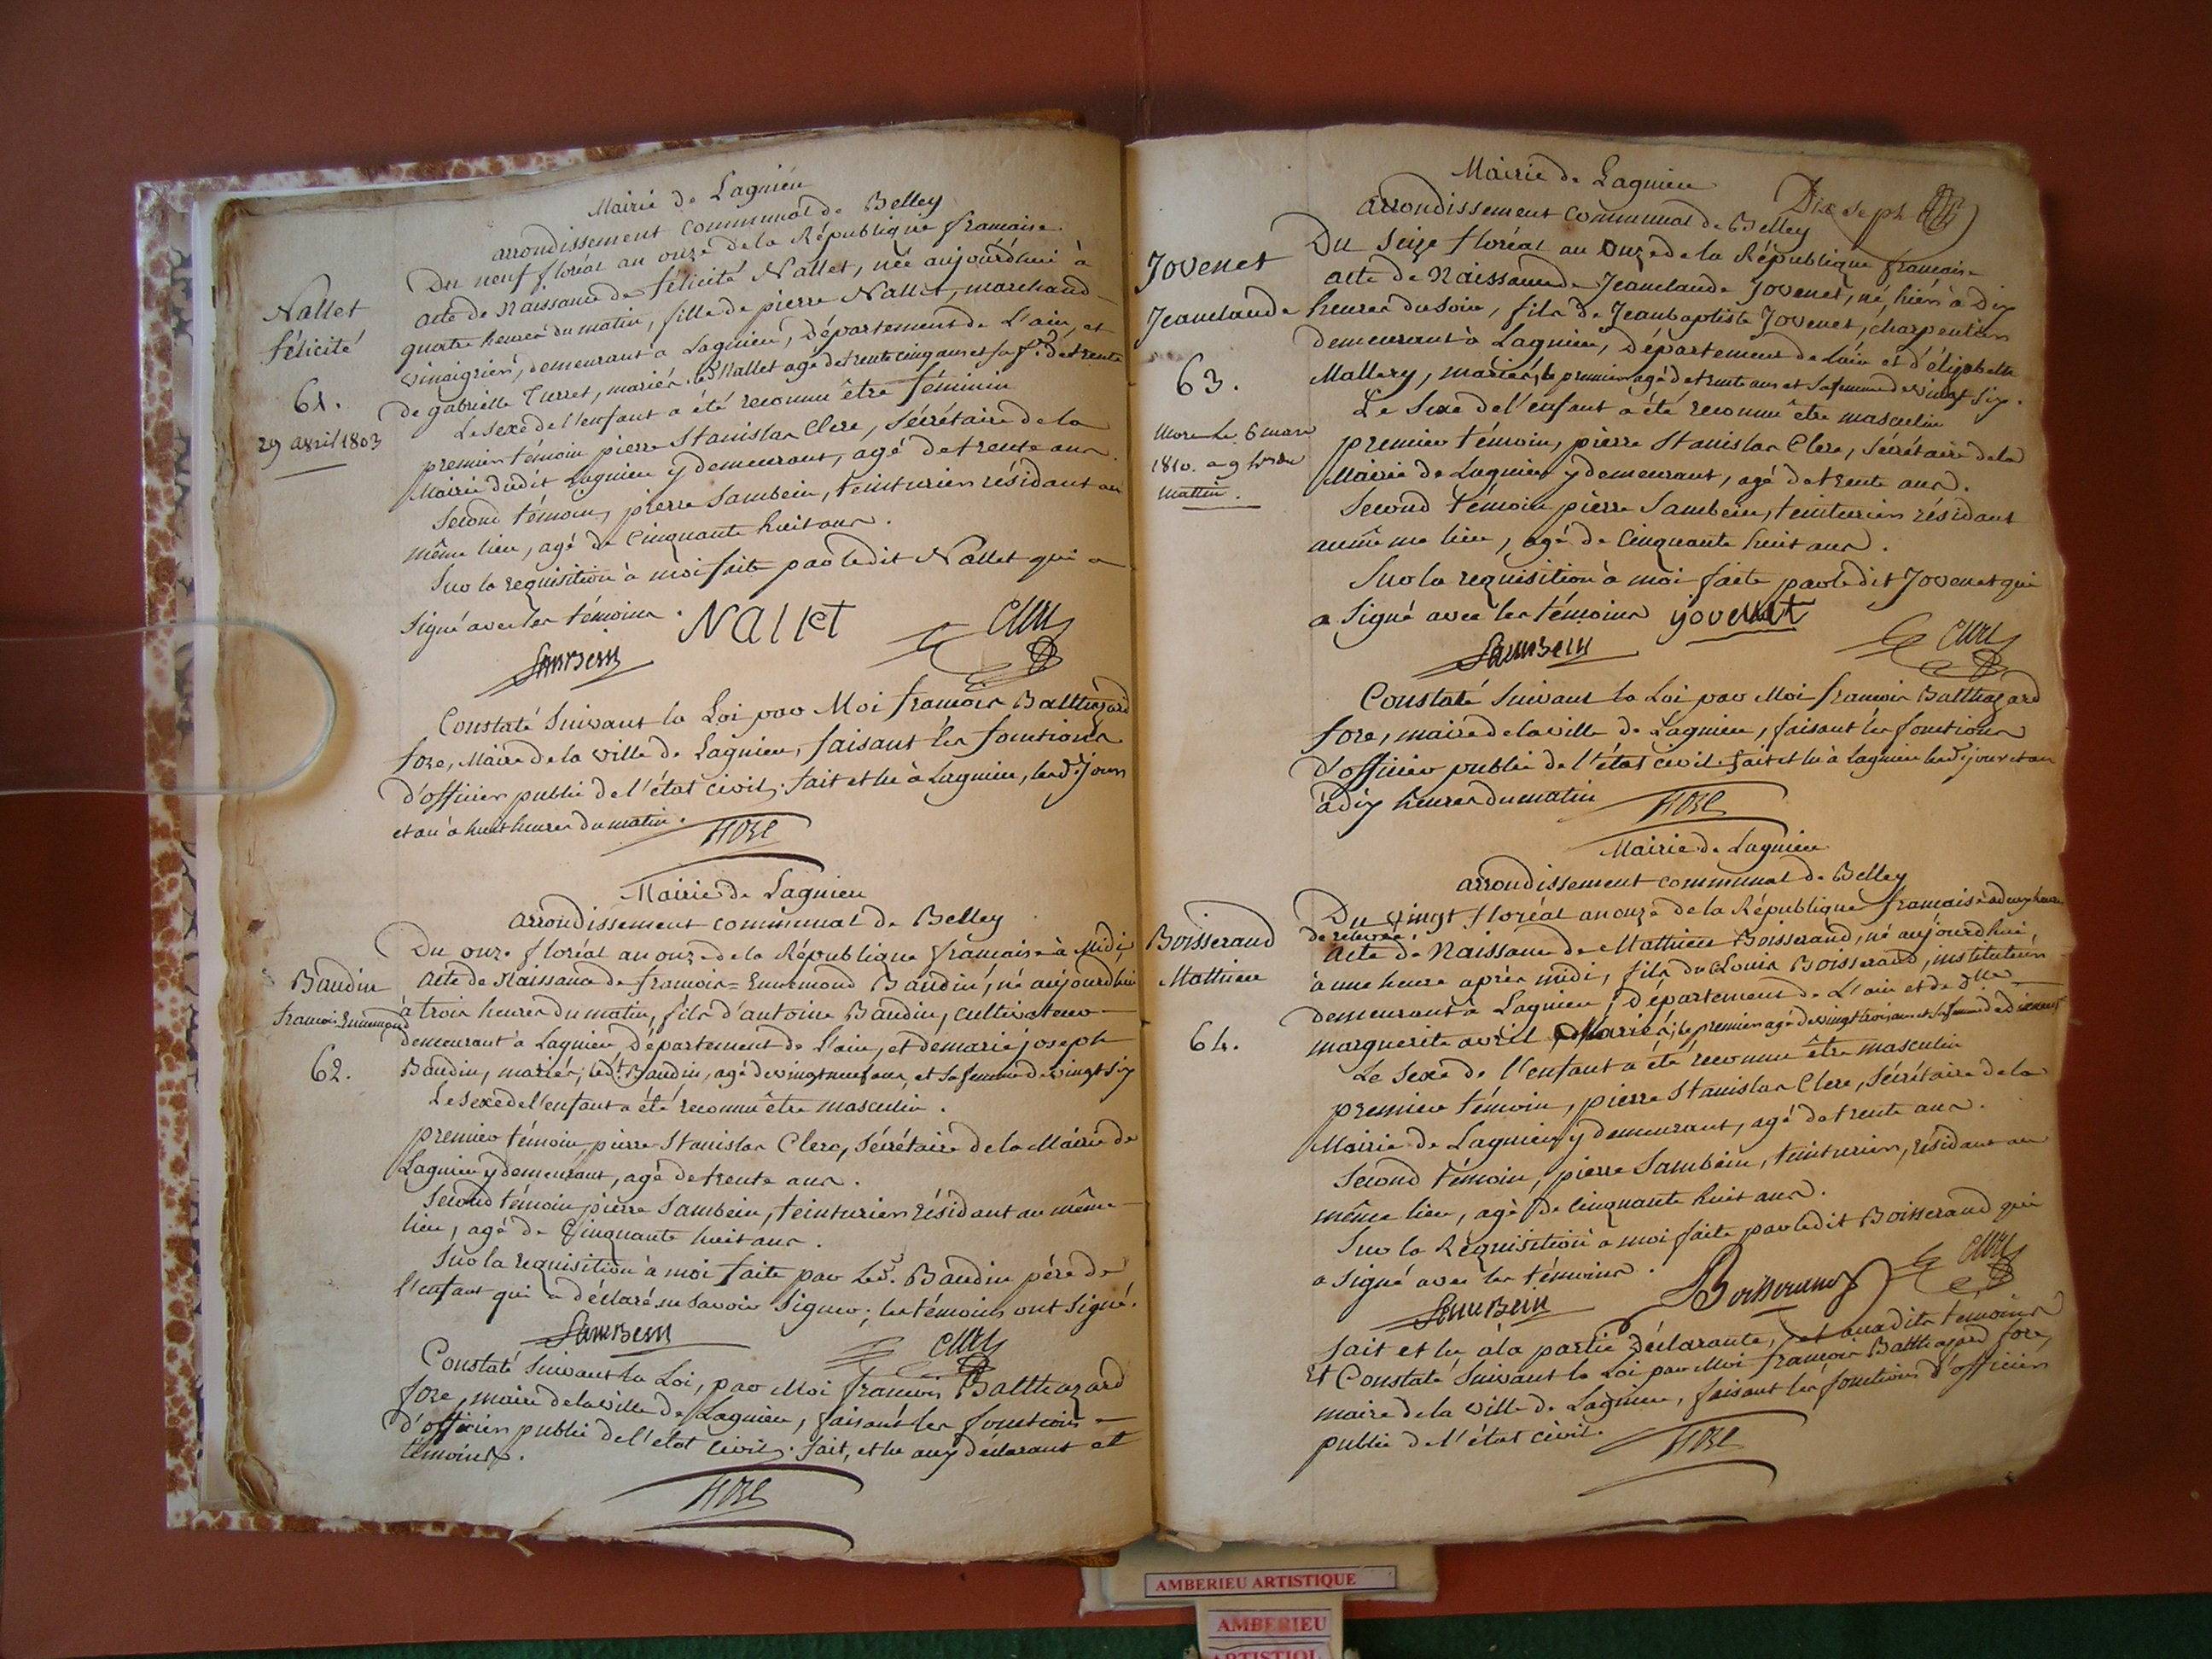 Mairie de Lagnieu
arrondissement communal de Belley
Du neuf floréal an onze de la République francaise
Nallet
félicité
61.
29 avril 1803
acte de Naissance de félicité Nallet, née aujourd'hui à
quatre heures du matin, fille de pierre Nallet, marchand
vinaigrier, demeurant à Lagnieu, Département de L'ain, et
de gabrielle Turret, mariés, led. Nallet agé de trente cinq ans et sa fe. de trente
Le sexe de l'enfant a été reconnu être féminin
premier témoin pierre Stanislas Clerc, Sécrétaire de la
Mairie dudit Lagnieu y demeurant, agé de trente ans.
Second témoin, pierre Sambein, teinturier résidant au
même lieu, agé de Cinquante huit ans.
Sur la requisition à moi faite par ledit Nallet qui a
signé avec les témoins. Nallet
Sambein Clerc
Constaté Suivant la Loi par Moi francois Balthazard
fore, Maire de la ville de Lagnieu, faisant les fonctions
d'officier public de l'état civil. fait et lu à Lagnieu, led. jour
et an à huit heures du matin.
fore
Mairie de Lagnieu
arrondissement communal de Belley
Du onze floréal an onze de la République francaise à Midi,
Baudin
francois Ennemond
62.
acte de Naissance de francois=Ennemond Baudin, né aujourd'hui
à trois heures du matin, fils d'antoine Baudin, cultivateur
demeurant à Lagnieu Département de L'ain, et de marie joseph
Baudin, mariés; ledt. Baudin, agé de vingt neuf ans, et sa femme de vingt six
Le sexe de l'enfant a été reconnu être masculin.
premier témoin, pierre Stanislas Clerc, Sécrétaire de la Mairie de
Lagnieu y demeurant, agé de trente ans.
Second témoin pierre Sambein, teinturier résidant au même
lieu, agé de Cinquante huit ans.
Sur la requisition à moi faite par led. Baudin père de
l'enfant qui a déclaré ne savoir signer; les témoins ont signé.
Sambein Clerc
Constaté Suivant la Loi, par Moi francois Balthazard
fore, maire de la ville de Lagnieu, faisant les fonctions
d'officier public de l'état civil. fait, et lu aux déclarant et
témoins.
fore
Mairie de Lagnieu
Dix sept
arrondissement communal de Belley
Du Seize floréal an Onze de la République française
Jovenet
Jeanclaude
63.
Mort le 6 mars
1810. a 9 hres du
mattin.
acte de Naissance de Jeanclaude Jovenet, né hier à Dix
heures du soir, fils de Jeanbaptiste Jovenet, charpentier
demeurant à Lagnieu, Département de l'ain et d'élizabeth
Mallery, mariés, le premier agé de trente ans et sa femme de vingt six.
Le Sexe de l'enfant a été reconnu être masculin
premier témoin, pierre Stanislas Clerc, Sécrétaire de la
Mairie de Lagnieu y demeurant, agé de trente ans.
Second témoin pierre Sambein, teinturier résidant
au même lieu, agé de Cinquante huit ans.
Sur la requisition à moi faite par ledit Jovenet qui
a Signé avec les témoins jovenet
Sambein Clerc
Constaté Suivant la Loi par Moi francois Balthazard
fore, maire de la ville de Lagnieu, faisant les fonctions
d'officier public de l'état civil. fait et lu à Lagnieu led. jour et an
à dix heures du matin fore
Mairie de Lagnieu
arrondissement communal de Belley
Du vingt floréal an onze de la République francaise à deux heures
de relevée.
Boisserand
Mathieu
64.
acte de Naissance de Mathieu Boisserand, né aujourd'hui,
à une heure après midi, fils de Louis Boisserand, instituteur
demeurant à Lagnieu, Département de L'ain et de dlle
marguerite avril, Mariés; le premier agé de vingt trois ans et sa femme de dix neuf
Le Sexe de l'enfant a été reconnu être masculin
premier témoin, pierre Stanislas Clerc, Sécrétaire de la
Mairie de Lagnieu y demeurant, agé de trente ans.
Second témoin, pierre Sambein, teinturier, résidant au
même lieu, agé de Cinquante huit ans.
Sur la Réquisition à moi faite par ledit Boisserand qui
a signé avec les témoins.
Sambein Boisserand Clerc
fait et lu à la partie déclarante, et auxdits témoins
Et Constaté Suivant la Loi par Moi françois Balthazard fore,
maire de la ville de Lagnieu, faisant les fonctions d'officier
public de l'état civil. fore
AMBERIEU ARTISTIQUE
AMBERIEU
ARTISTIQU